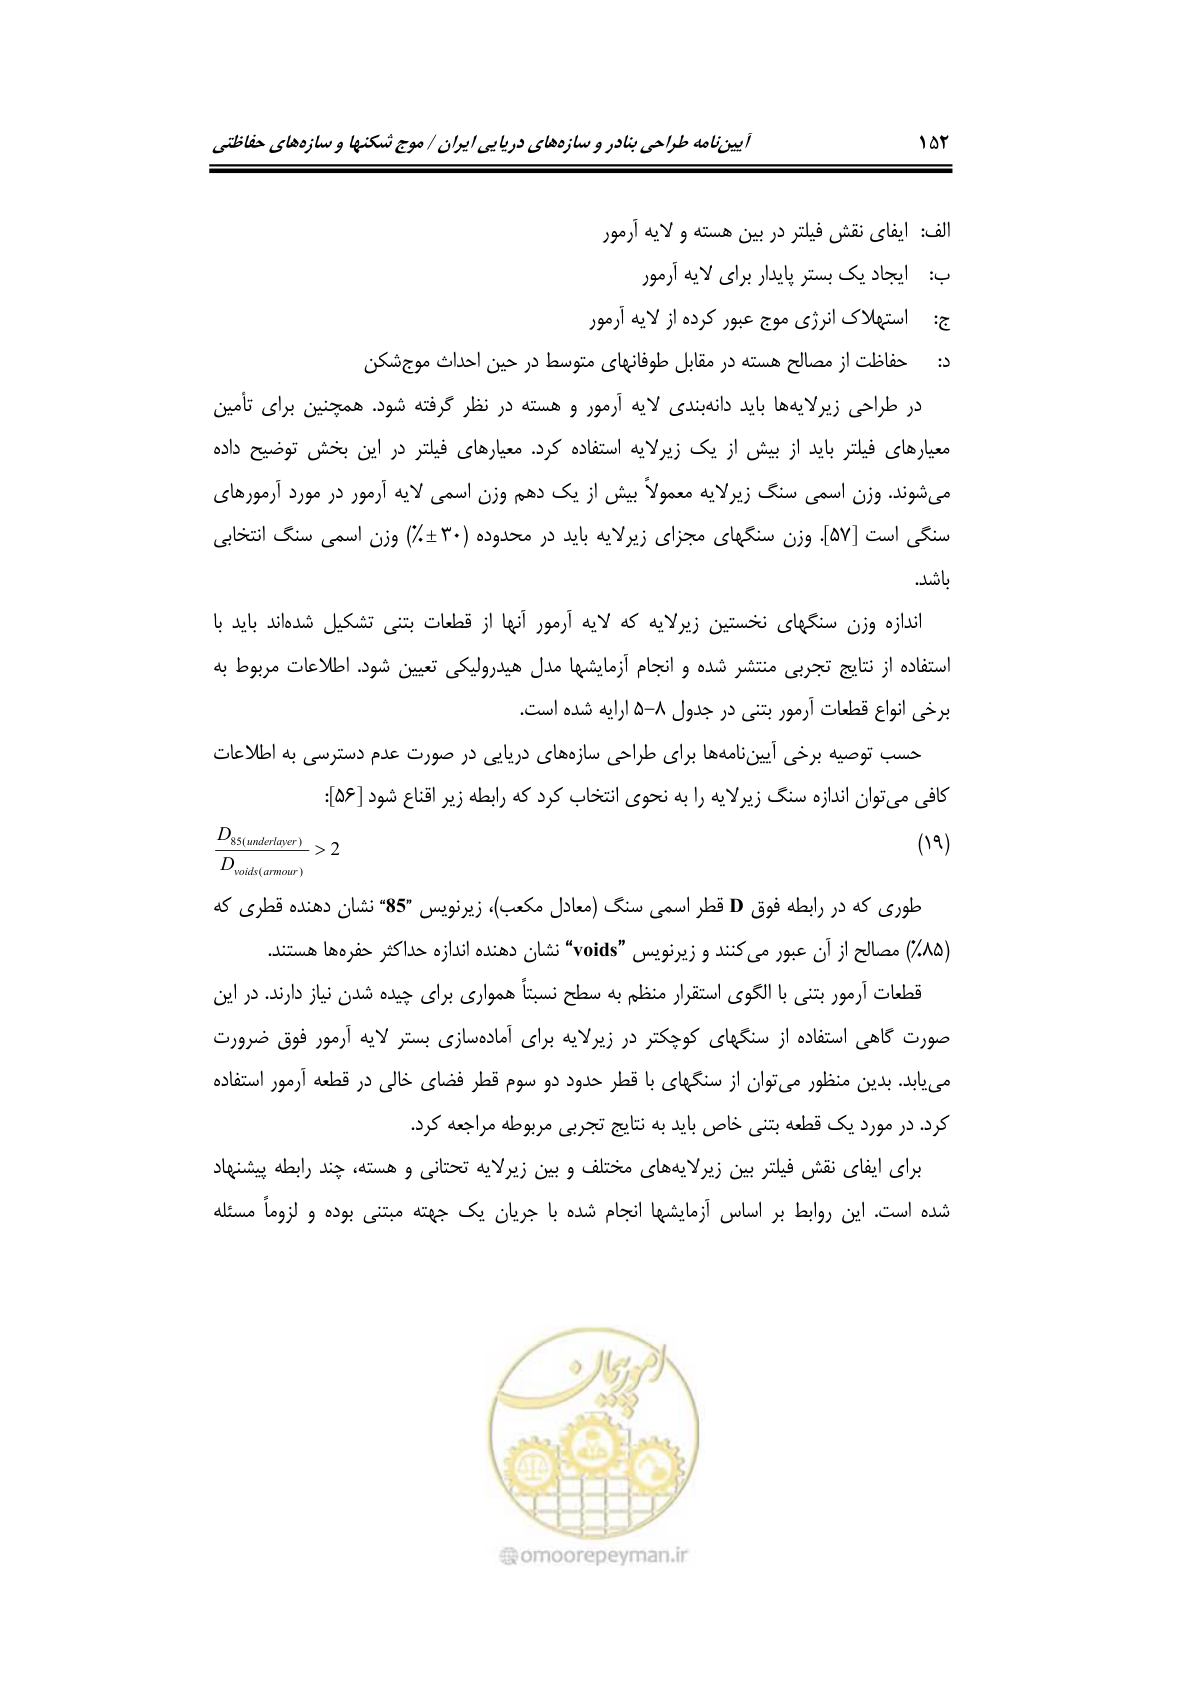 ۱۵۲ آیین‌نامه طراحی بنادر و سازه‌های دریایی ایران / موج شکنها و سازه‌های حفاظتی
الف: ایفای نقش فیلتر در بین هسته و لایه آرمور
ب: ایجاد یک بستر پایدار برای لایه آرمور
ج: استهلاک انرژی موج عبور کرده از لایه آرمور
د: حفاظت از مصالح هسته در مقابل طوفانهای متوسط در حین احداث موج‌شکن
در طراحی زیرلایه‌ها باید دانه‌بندی لایه آرمور و هسته در نظر گرفته شود. همچنین برای تأمین
معیارهای فیلتر باید از بیش از یک زیرلایه استفاده کرد. معیارهای فیلتر در این بخش توضیح داده
می‌شوند. وزن اسمی سنگ زیرلایه معمولاً بیش از یک دهم وزن اسمی لایه آرمور در مورد آرمورهای
سنگی است [۵۷]. وزن سنگهای مجزای زیرلایه باید در محدوده (۳۰ ±٪) وزن اسمی سنگ انتخابی
باشد.
اندازه وزن سنگهای نخستین زیرلایه که لایه آرمور آنها از قطعات بتنی تشکیل شده‌اند باید با
استفاده از نتایج تجربی منتشر شده و انجام آزمایشها مدل هیدرولیکی تعیین شود. اطلاعات مربوط به
برخی انواع قطعات آرمور بتنی در جدول ۸–۵ ارایه شده است.
حسب توصیه برخی آیین‌نامه‌ها برای طراحی سازه‌های دریایی در صورت عدم دسترسی به اطلاعات
کافی می‌توان اندازه سنگ زیرلایه را به نحوی انتخاب کرد که رابطه زیر اقناع شود [۵۶]:
(۱۹) D85(underlayer) / Dvoids(armour) > 2
طوری که در رابطه فوق D قطر اسمی سنگ (معادل مکعب)، زیرنویس "85" نشان دهنده قطری که
(۸۵٪) مصالح از آن عبور می‌کنند و زیرنویس "voids" نشان دهنده اندازه حداکثر حفره‌ها هستند.
قطعات آرمور بتنی با الگوی استقرار منظم به سطح نسبتاً همواری برای چیده شدن نیاز دارند. در این
صورت گاهی استفاده از سنگهای کوچکتر در زیرلایه برای آماده‌سازی بستر لایه آرمور فوق ضرورت
می‌یابد. بدین منظور می‌توان از سنگهای با قطر حدود دو سوم قطر فضای خالی در قطعه آرمور استفاده
کرد. در مورد یک قطعه بتنی خاص باید به نتایج تجربی مربوطه مراجعه کرد.
برای ایفای نقش فیلتر بین زیرلایه‌های مختلف و بین زیرلایه تحتانی و هسته، چند رابطه پیشنهاد
شده است. این روابط بر اساس آزمایشها انجام شده با جریان یک جهته مبتنی بوده و لزوماً مسئله
امور پیمان
omoorepeyman.ir